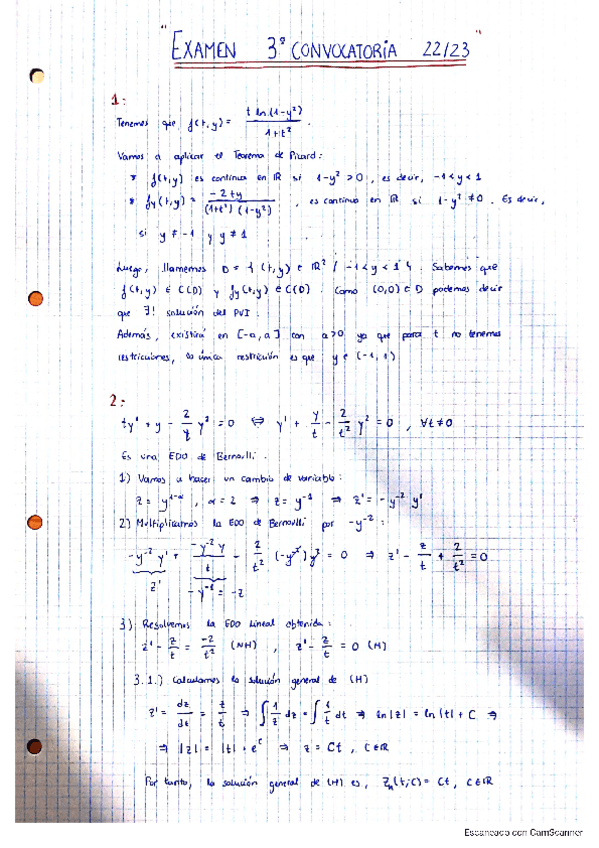 "EXAMEN 3ª CONVOCATORIA 22/23"
1:
Tenemos que f(t,y) = t ln(1-y²) / 1+t² .
Vamos a aplicar el Teorema de Picard:
* f(t,y) es continua en IR si 1-y² > 0, es decir, -1<y<1
* fy(t,y) = -2ty / (1+t²)(1-y²) , es continua en IR si 1-y² ≠ 0. Es decir,
si y ≠ -1 y y ≠ 1
Luego, llamemos D = { (t,y) ∈ IR² / -1<y<1 }. Sabemos que
f(t,y) ∈ C(D) y fy(t,y) ∈ C(D). Como (0,0) ∈ D podemos decir
que ∃! solución del PVI.
Además, existirá en [-a,a] con a>0 ya que para t no tenemos
restricciones, la única restricción es que y ∈ (-1,1)
2:
ty' + y - 2/t y² = 0 ⇔ y' + y/t - 2/t² y² = 0 , ∀t≠0
Es una EDO de Bernoulli.
1) Vamos a hacer un cambio de variable:
z = y^(1-α) , α = 2 ⇒ z = y⁻¹ ⇒ z' = -y⁻² y'
2) Multiplicamos la EDO de Bernoulli por -y⁻²:
-y⁻² y' + -y⁻² y / t - 2/t² (-y⁻²) y² = 0 ⇒ z' - z/t + 2/t² = 0
z' -y⁻¹ = -z
3) Resolvemos la EDO Lineal obtenida:
z' - z/t = -2/t² (NH) , z' - z/t = 0 (H)
3.1.) Calculamos la solución general de (H)
z' = dz/dt = z/t ⇒ ∫ 1/z dz = ∫ 1/t dt ⇒ ln|z| = ln|t| + C ⇒
⇒ |z| = |t| · e^c ⇒ z = Ct , C∈IR
Por tanto, la solución general de (H) es, Zh(t;C) = Ct, C∈IR
Escaneado con CamScanner